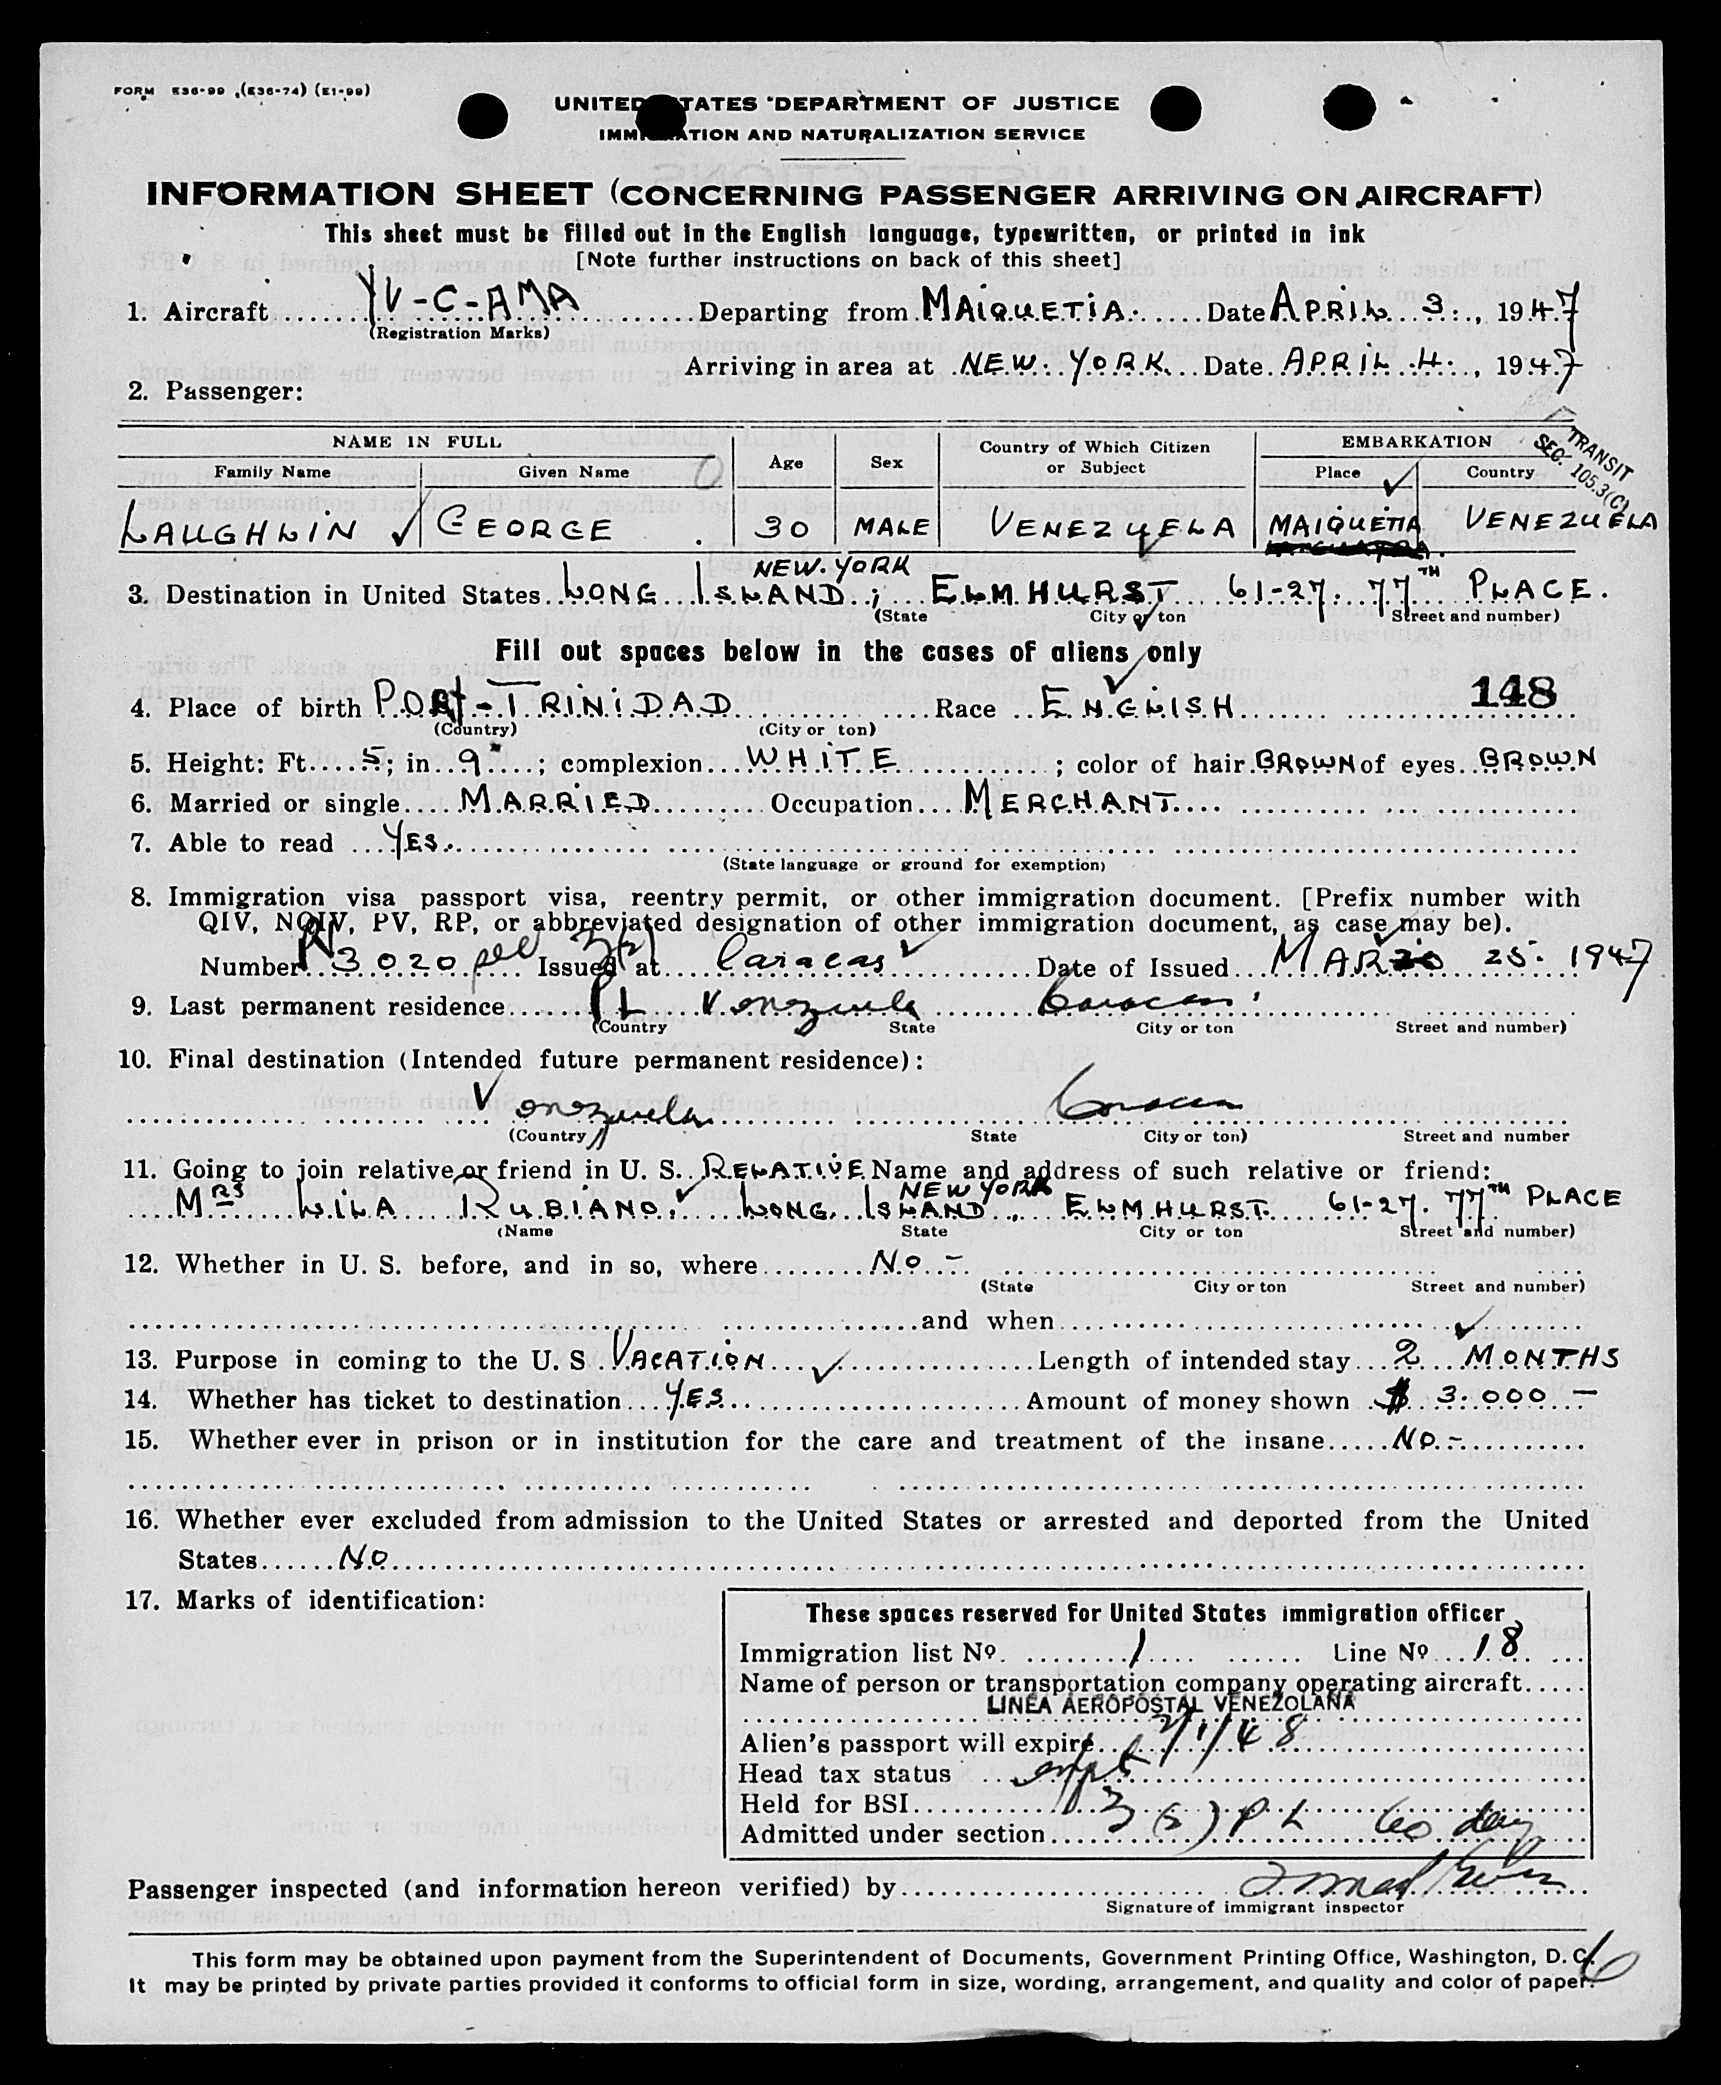 FORM E36-99 (E36-74) (E1-99)
UNITED STATES DEPARTMENT OF JUSTICE
IMMIGRATION AND NATURALIZATION SERVICE
INFORMATION SHEET (CONCERNING PASSENGER ARRIVING ON AIRCRAFT)
This sheet must be filled out in the English language, typewritten, or printed in ink
[Note further instructions on back of this sheet]
1. Aircraft YV-C-AMA Departing from MAIQUETIA. Date APRIL 3., 1947
(Registration Marks)
Arriving in area at NEW. YORK. Date APRIL 4., 1947
2. Passenger:
TRANSIT
SEC. 105.3(C)
NAME IN FULL Age Sex Country of Which Citizen or Subject EMBARKATION
Family Name Given Name Place Country
LAUGHLIN GEORGE 30 MALE VENEZUELA MAIQUETIA VENEZUELA
NEW. YORK
3. Destination in United States LONG ISLAND; ELMHURST 61-27. 77TH PLACE.
(State City or ton Street and number)
Fill out spaces below in the cases of aliens only
4. Place of birth PORT-TRINIDAD Race ENGLISH 148
(Country) (City or ton)
5. Height: Ft. 5; in 9"; complexion WHITE; color of hair BROWN of eyes BROWN
6. Married or single MARRIED Occupation MERCHANT
7. Able to read YES.
(State language or ground for exemption)
8. Immigration visa passport visa, reentry permit, or other immigration document. [Prefix number with
QIV, NQIV, PV, RP, or abbreviated designation of other immigration document, as case may be).
Number 3020 Issued at Caracas Date of Issued 25. 1947
9. Last permanent residence Venezuela Caracas
(Country State City or ton Street and number)
10. Final destination (Intended future permanent residence):
Venezuela Caracas
(Country) State City or ton) Street and number
11. Going to join relative or friend in U. S. RELATIVE Name and address of such relative or friend:
NEW YORK
MRS LILA RUBIANO. LONG ISLAND, ELMHURST. 61-27. 77TH PLACE
(Name State City or ton Street and number)
12. Whether in U. S. before, and in so, where NO -
(State City or ton Street and number)
and when
13. Purpose in coming to the U. S VACATION Length of intended stay 2 MONTHS
14. Whether has ticket to destination YES Amount of money shown $ 3.000 -
15. Whether ever in prison or in institution for the care and treatment of the insane NO.-
16. Whether ever excluded from admission to the United States or arrested and deported from the United
States NO
17. Marks of identification:
These spaces reserved for United States immigration officer
Immigration list No. 1 Line No 18
Name of person or transportation company operating aircraft
LINEA AEROPOSTAL VENEZOLANA
Alien's passport will expire 2/1/48
Head tax status
Held for BSI
Admitted under section 3(2) PL 60 day
Passenger inspected (and information hereon verified) by
Signature of immigrant inspector
This form may be obtained upon payment from the Superintendent of Documents, Government Printing Office, Washington, D. C.
It may be printed by private parties provided it conforms to official form in size, wording, arrangement, and quality and color of paper.
6